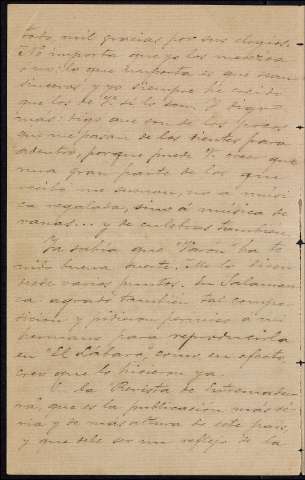 todo mil gracias por sus elogios.
No importa que yo los merezca
ó no; lo que importa es que sean
sinceros y yo siempre he creido
que los de V. sí lo son. Y digo
más: digo que son de los pocos
que me pasan de los dientes para
adentro, porque puede V. creer que
una gran parte de los que
recibo me suenan, no á músi
ca regalada, sino á música de
ranas... y de culebras tambien.
Ya sabía que "Varón" ha te
nido buena suerte. Me lo dicen
desde varios puntos. En Salaman
ca agradó tambien tal compo
sicion y pidieron permiso a mi
hermano para reproducirla
en "El Lábaro", como, en efecto,
creo que lo hicieron ya.
V. la "Revista de Extremadu
ra", que es la publicación más se
ria y de más altura de este país,
y que debe ser un reflejo de la